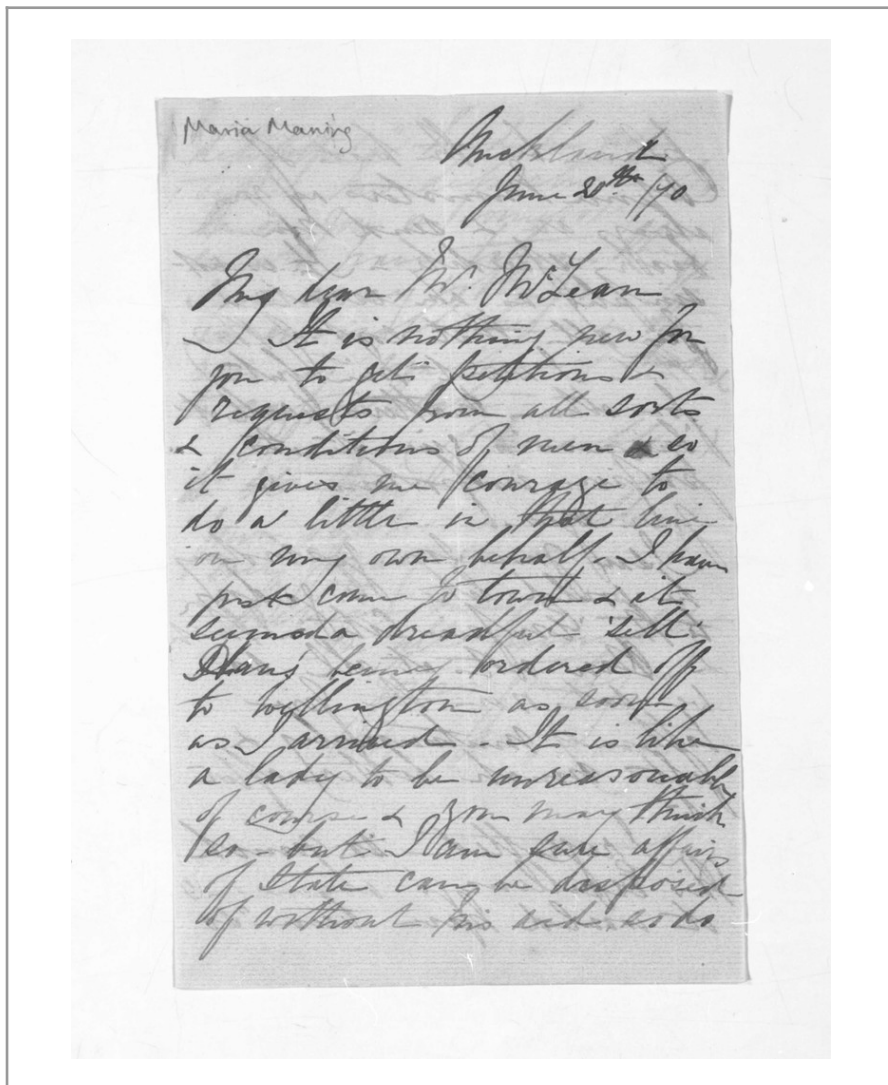 Maria Maning
Auckland
June 20th/70
My dear Mr. McLean
It is nothing new for
you to get petitions &
requests from all sorts
& conditions of men & so
it gives me courage to
do a little in that line
on my own behalf - I have
just come to town & it
seems a dreadful 'sell'
being ordered off
to Wellington as soon
as I arrived - It is like
a lady to be unreasonable
of course & you may think
so - but I am sure affairs
of State can be disposed
of without his aid so do